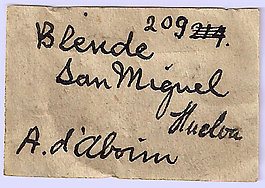 209
Blende
San Miguel
Huelva
A. d'Aboim